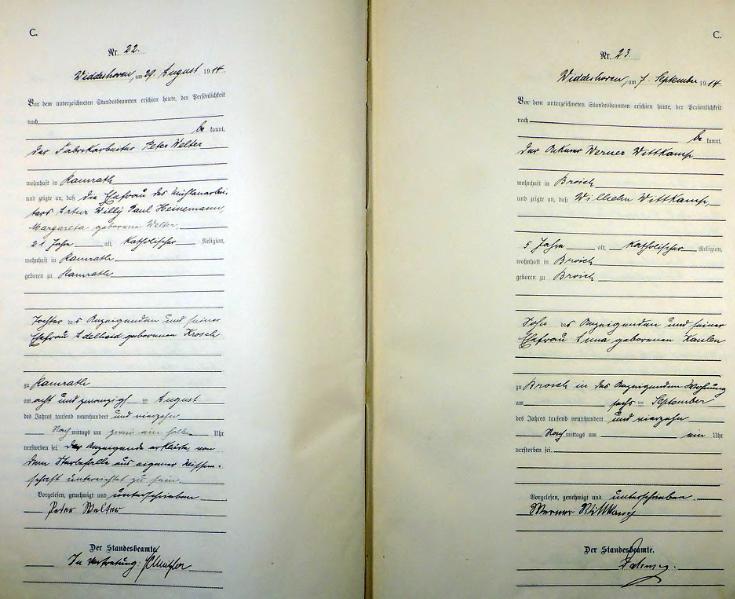 C.
Nr. 22.
Widdeshoven, am 29. August 1914.
Vor dem unterzeichneten Standesbeamten erschien heute, der Persönlichkeit
nach
be kannt,
der Fabrikarbeiter Peter Welter
wohnhaft in Ramrath
und zeigte an, daß die Ehefrau des
Artur Willy Paul Heinemann,
Margareta geborene Welter
21 Jahre alt, katholischer Religion,
wohnhaft in Ramrath
geboren zu Ramrath
Tochter des Anzeigenden und seiner
Ehefrau Adelheid geborenen Krosch
zu Ramrath
am acht und zwanzigsten August
des Jahres tausend neunhundert und vierzehn
Nach mittags um ein halb Uhr
verstorben sei. Der Anzeigende erklärte von
dem Sterbefalle aus eigener Wissen-
schaft unterrichtet zu sein.
Vorgelesen, genehmigt und unterschrieben
Peter Welter
Der Standesbeamte.
In Vertretung:
C.
Nr. 23
Widdeshoven, am 7. September 1914
Vor dem unterzeichneten Standesbeamten erschien heute, der Persönlichkeit
nach
be kannt,
der Ackerer Werner Wittkamp
wohnhaft in Broich
und zeigte an, daß Wilhelm Wittkamp
5 Jahre alt, katholischer Religion,
wohnhaft in Broich
geboren zu Broich
Sohn des Anzeigenden und seiner
Ehefrau Anna geborenen Kaulen
zu Broich in des Anzeigenden Wohnung
am sechsten September
des Jahres tausend neunhundert und vierzehn
Nach mittags um ein Uhr
verstorben sei.
Vorgelesen, genehmigt und unterschrieben.
Werner Wittkamp
Der Standesbeamte.